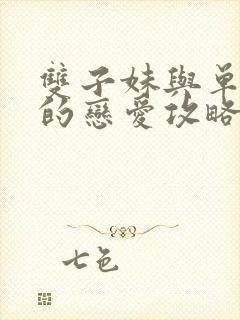 雙子妹與單
的戀愛攻略
七色